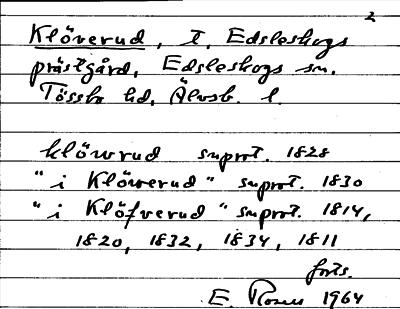 2
Klöverud, t. Edsleskogs
prästgård, Edsleskogs sn.
Tössbo hd, Älvsb. l.
klöwrud snprot. 1828
"i Klöwerud" snprot. 1830
"i Klöfverud" snprot. 1814,
1820, 1832, 1834, 1811
forts.
E. Rosen 1964